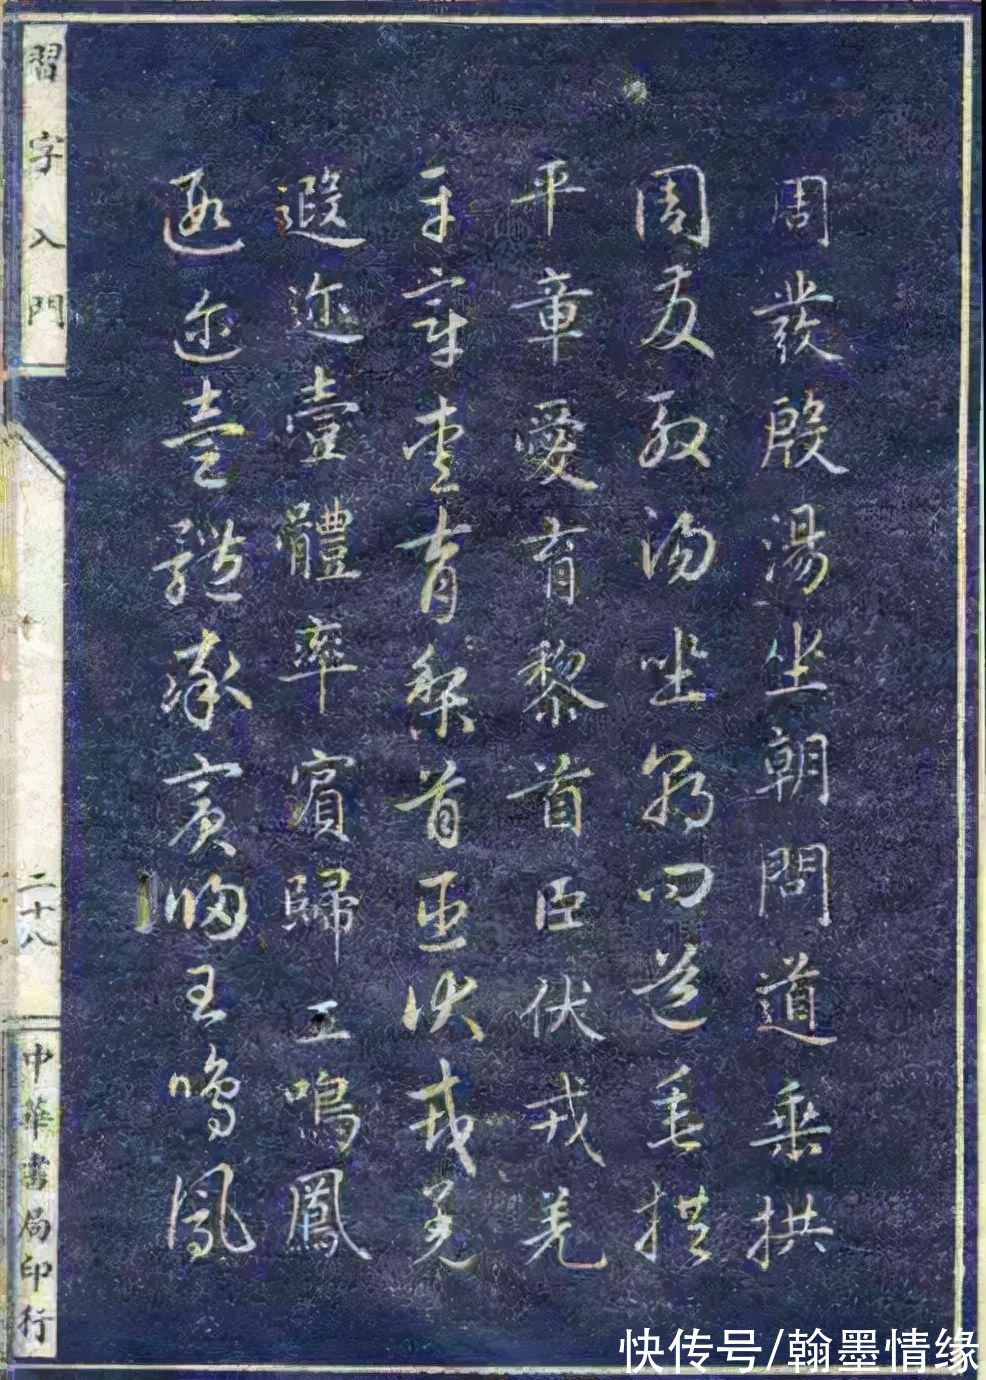 周發殷湯坐朝問道垂拱
周發殷湯坐朝問道垂拱
平章愛育黎首臣伏戎羌
平章愛育黎首臣伏戎羌
遐迩壹體率賓歸王鳴鳳
遐迩壹體率賓歸王鳴鳳
習字入門
二十八
中華書局印行
快传号/翰墨情缘